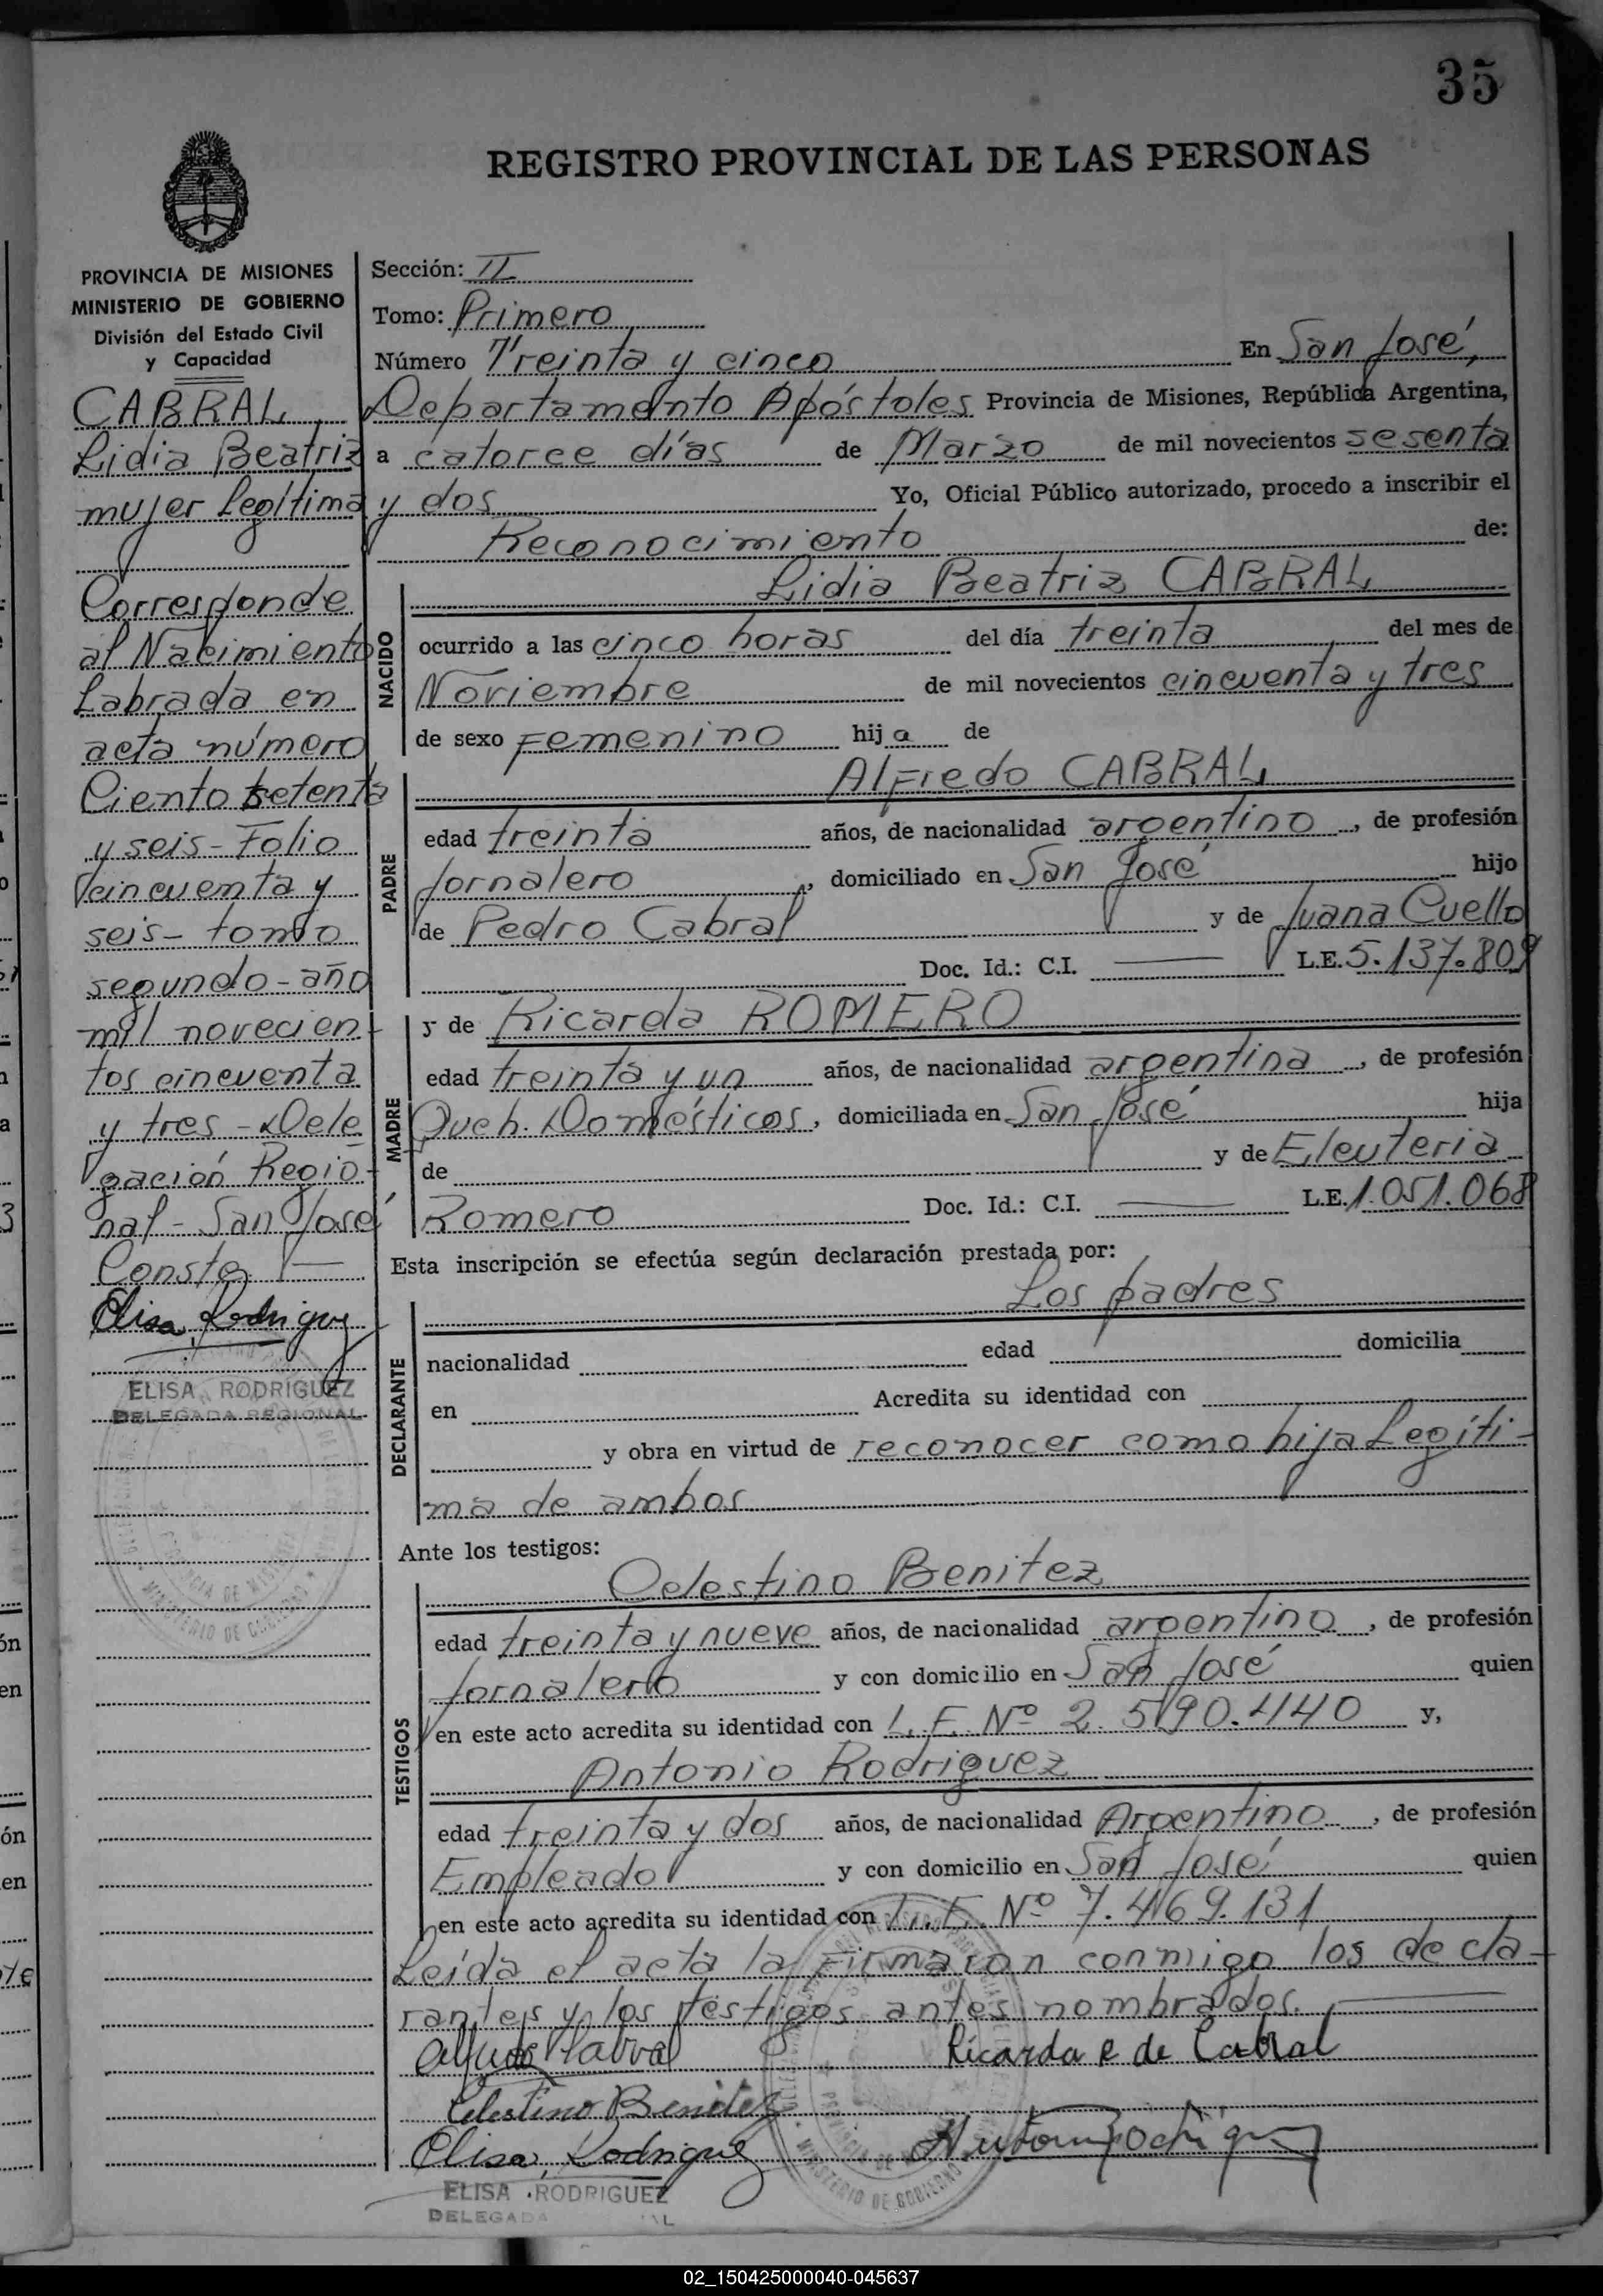 35
REGISTRO PROVINCIAL DE LAS PERSONAS
PROVINCIA DE MISIONES
MINISTERIO DE GOBIERNO
División del Estado Civil
y Capacidad
CABRAL
Lidia Beatriz
mujer Legítima
Corresponde
al Nacimiento
Labrada en
acta número
Ciento setenta
y seis - Folio
cincuenta y
seis - tomo
segundo - año
mil novecien-
tos cincuenta
y tres - Dele
gación Regio-
nal - San José
Conste
Elisa Rodriguez
ELISA RODRIGUEZ
DELEGADA REGIONAL
Sección: II
Tomo: Primero
Número Treinta y cinco En San José,
Departamento Apóstoles Provincia de Misiones, República Argentina,
a catorce días de Marzo de mil novecientos sesenta
y dos Yo, Oficial Público autorizado, procedo a inscribir el
Reconocimiento de:
NACIDO
Lidia Beatriz CABRAL
ocurrido a las cinco horas del día treinta del mes de
Noviembre de mil novecientos cincuenta y tres
de sexo Femenino hija de
PADRE
Alfredo CABRAL
edad treinta años, de nacionalidad argentino, de profesión
Jornalero, domiciliado en San José hijo
de Pedro Cabral y de Juana Cuello
Doc. Id.: C.I. —— L.E. 5.137.809
MADRE
y de Ricarda ROMERO
edad treinta y un años, de nacionalidad argentina, de profesión
Queh. Domésticos, domiciliada en San José hija
de y de Eleuteria
Romero Doc. Id.: C.I. —— L.E. 1.051.068
Esta inscripción se efectúa según declaración prestada por:
DECLARANTE
Los padres
nacionalidad edad domicilia
en Acredita su identidad con
y obra en virtud de reconocer como hija Legíti-
ma de ambos
Ante los testigos:
TESTIGOS
Celestino Benitez
edad treinta y nueve años, de nacionalidad argentino, de profesión
Jornalero y con domicilio en San José quien
en este acto acredita su identidad con L.E. Nº 2.590.440 y,
Antonio Rodriguez
edad treinta y dos años, de nacionalidad Argentino, de profesión
Empleado y con domicilio en San José quien
en este acto acredita su identidad con L.E. Nº 7.469.131
Leída el acta la Firmaron conmigo los decla-
rantes y los testigos antes nombrados.
Alfredo Cabral Ricarda R de Cabral
Celestino Benitez
Elisa Rodriguez Antonio Rodriguez
ELISA RODRIGUEZ
DELEGADA
02_150425000040-045637